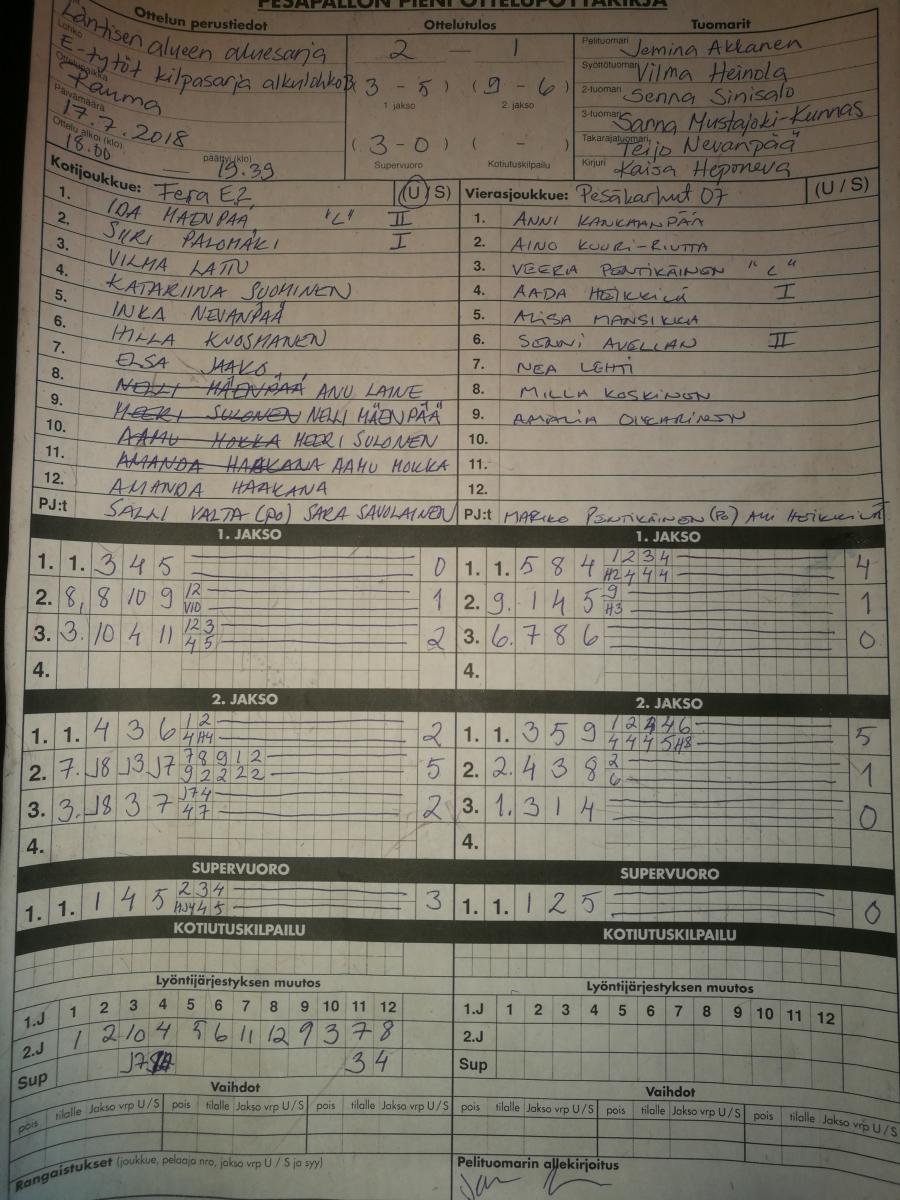 PESÄPALLON PIENI OTTELUPÖYTÄKIRJA
Ottelun perustiedot
Ottelutulos
Tuomarit
Läntisen alueen aluesarja
Lohko
E-tytöt kilpasarja alkulohko B
Ottelupaikka
Rauma
Päivämäärä
17.7.2018
Ottelu alkoi (klo)
18.00
päättyi (klo)
— 19.39
2 — 1
(3 - 5) (9 - 6)
1 jakso 2. jakso
(3 - 0) ( - )
Supervuoro Kotiutuskilpailu
Pelituomari Jemina Akkanen
Syöttötuomari Vilma Heinola
2-tuomari Senna Sinisalo
3-tuomari Sanna Mustajoki-Kunnas
Takarajatuomari Teijo Nevanpää
Kirjuri Kaisa Heponeva
Kotijoukkue: Fera E2 (U / S)
1. IDA MÄENPÄÄ "L" II
2. SIIRI PALOMÄKI I
3. VILMA LATTU
4. KATARIINA SUOMINEN
5. INKA NEVANPÄÄ
6. HILLA KNOSMANEN
7. ELSA JAAKO
8. NELLI MÄENPÄÄ ANU LAINE
9. MEERI SULONEN NELLI MÄENPÄÄ
10. AAMU MOKKA MEERI SULONEN
11. AMANDA HAAKANA AAMU MOKKA
12. AMANDA HAAKANA
PJ:t SALLI VALTA (PO) SARA SAVOLAINEN
Vierasjoukkue: Pesäkarhut 07 (U / S)
1. ANNI KANKAANPÄÄ
2. AINO KUURI-RIUTTA
3. VEERA PENTIKÄINEN "L"
4. AADA HEIKKILÄ I
5. ALISA MANSIKKA
6. SENNI AVELLAN II
7. NEA LEHTI
8. MILLA KOSKINEN
9. AMALIA OIKARINEN
10.
11.
12.
PJ:t MARKO PENTIKÄINEN (PO) HEIKKILÄ
1. JAKSO
1. 1. 3 4 5 0
2. 8. 8 10 9 12 1
V10
3. 3. 10 4 11 12 3 2
4 5
4.
1. JAKSO
1. 1. 5 8 4 1 2 3 4 4
H2 4 4 4
2. 9. 1 4 5 9 1
H3
3. 6. 7 8 6 0
4.
2. JAKSO
1. 1. 4 3 6 1 2 2
4 H4
2. 7. J8 J3 J7 7 8 9 1 2 5
9 2 2 2 2
3. 3. J8 3 7 J7 4 2
4 7
4.
2. JAKSO
1. 1. 3 5 9 1 2 4 4 6 5
4 4 4 5 H8
2. 2. 4 3 8 2 1
6
3. 1. 3 1 4 0
4.
SUPERVUORO
1. 1. 1 4 5 2 3 4 3
4 5
SUPERVUORO
1. 1. 1 2 5 0
KOTIUTUSKILPAILU
KOTIUTUSKILPAILU
Lyöntijärjestyksen muutos
1.J 1 2 3 4 5 6 7 8 9 10 11 12
2.J 1 2 10 4 5 6 11 12 9 3 7 8
Sup J7 3 4
Lyöntijärjestyksen muutos
1.J 1 2 3 4 5 6 7 8 9 10 11 12
2.J
Sup
Vaihdot
pois tilalle Jakso vrp U / S pois tilalle Jakso vrp U / S pois tilalle Jakso vrp U / S
Vaihdot
pois tilalle Jakso vrp U / S pois tilalle Jakso vrp U / S pois tilalle Jakso vrp U / S
Rangaistukset (joukkue, pelaaja nro, jakso vrp U / S ja syy)
Pelituomarin allekirjoitus